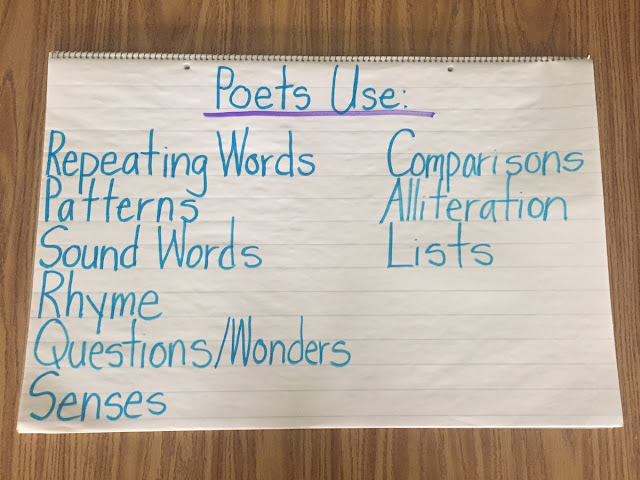 Poets Use:
Repeating Words
Patterns
Sound Words
Rhyme
Questions/Wonders
Senses
Comparisons
Alliteration
Lists